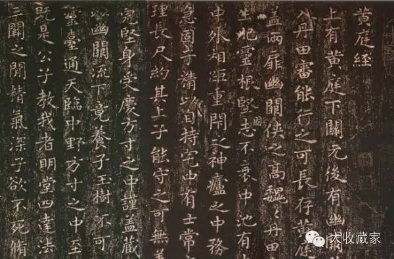 黃庭經
上有黃庭下關元後有幽
入丹田審能行之可長存
蓋兩扉幽闕俠之高巍巍丹田
生肥靈根堅志不衰中池有
中外相距重閉之神廬之中務
急固子精以自持宅中有士常
理長尺約其上子能守之可無
完堅身受慶方寸之中謹蓋藏
幽闕流下竟養子玉樹不可
靈臺通天臨中野方寸之中至
既是公子教我者明堂四達法
三關之間精氣深子欲不死脩
大收藏家